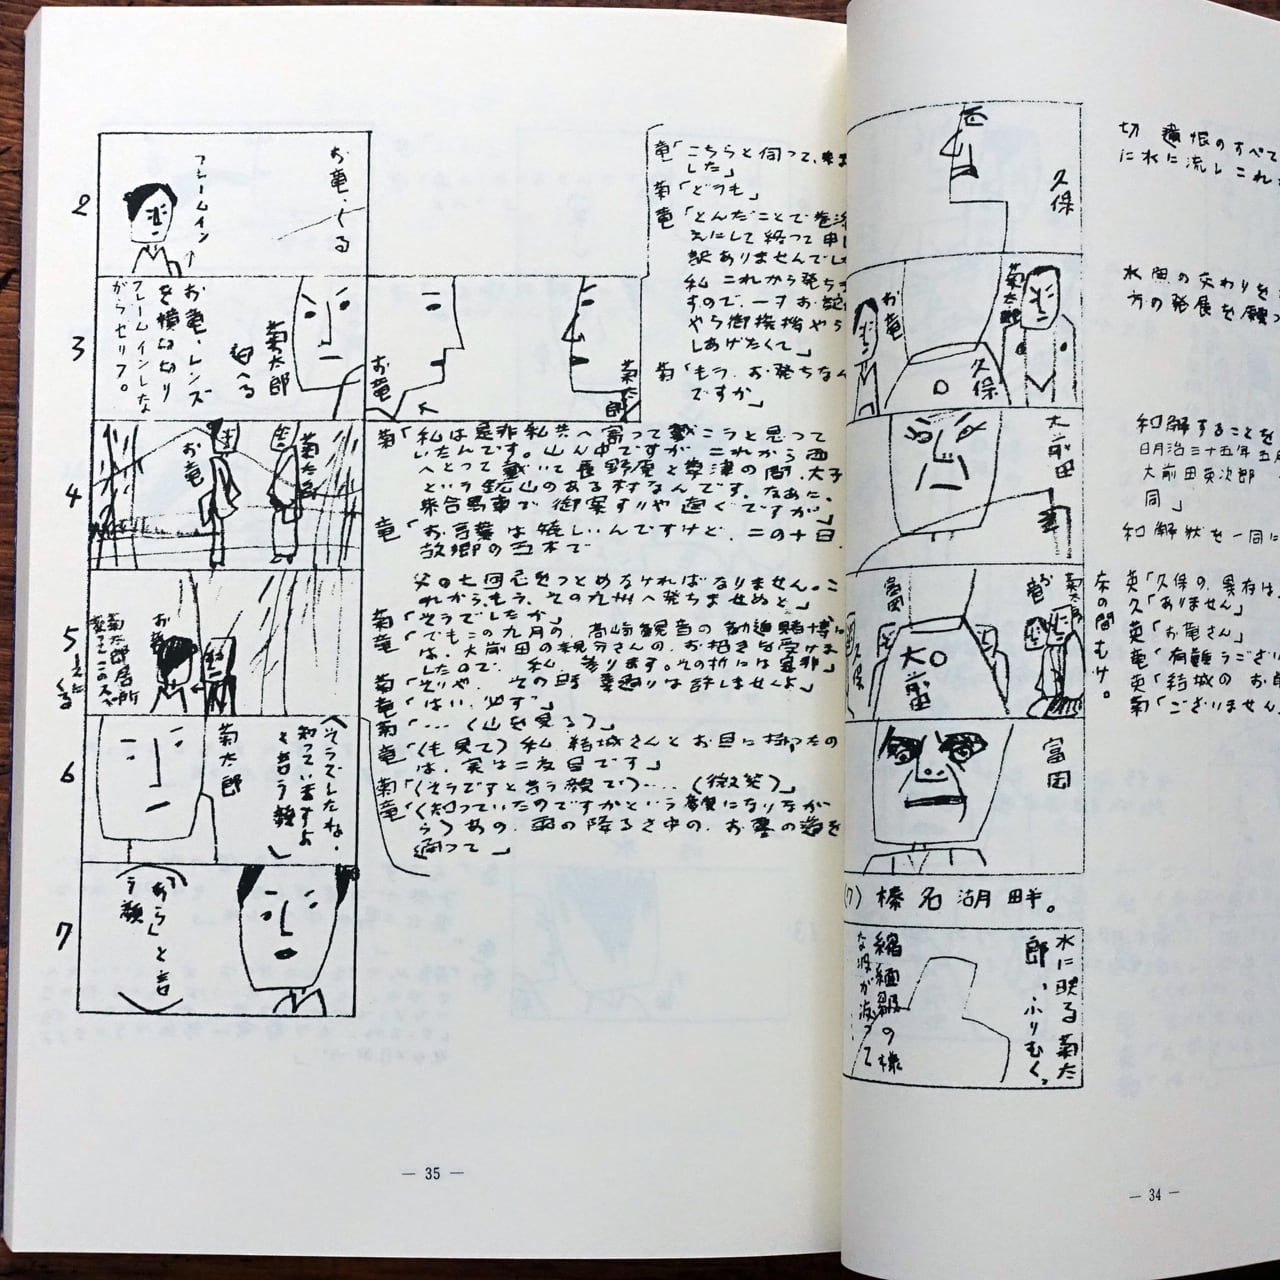 切
遺恨のすべて
に水に流しこれ
久保
水魚の交わりを
方の発展を願っ
お竜
菊太郎
久保
大前田
和解することを
明治三十五年五月
大前田英次郎
同」
和解状を一同に
富岡
お竜
菊太郎
久保
大前田
床の間むけ。
英「久保の、異存は
久「ありません」
英「お竜さん」
竜「有難うござい
英「結城の お
菊「ございません
富岡
(7) 榛名湖畔。
水に映る菊太
郎、ふりむく。
縮緬皺の様
な波が渡って
— 34 —
2
お竜、くる
フレームイン
竜「こちらと伺って、
した」
菊「どうも」
竜「とんだことで巻
えにして終って申し
訳ありませんでし
私 これから発ち
すので、一寸お
やら御挨拶やら
しあげたくて」
菊「もう、お発ちなん
ですか」
3
菊太郎
お竜、レンズ
を横切り
フレームインしな
がらセリフ。
お竜
菊太郎
4
お竜
菊太郎
菊「私は是非私共へ寄って戴こうと思って
いたんです。山ん中ですが これから西
へとって戴いて長野原と草津の間、大子
という鉱山のある村なんです。なあに、
乗合馬車で 御案ずりや 直ぐですが」
竜「お言葉は嬉しいんですけど、この十日、
故郷の五木で
父の七回忌をつとめなければなりません。こ
れから、もう、その九州へ発ちませぬと」
5
お竜
菊太郎居所
変えてこの
菊「そうでしたか」
竜「でもこの九月の、高崎観音の勧進賭博に
は、大前田の親分さんの、お招きを受けま
したので、私、参ります。その折には是非」
菊「そりや、その時 素通りは許しませんよ」
竜「はい、必ず」
菊「…(山を見る)」
6
菊太郎
(そうでしたね、
知っていますよ
と言う顔)
竜「(も見て)私、結城さんと お目に掛ったの
は、実は二度目です」
菊「(そうですと言う顔で)…(微笑)」
竜「(知っていたのですかという顔になりなが
ら)あの、雨の降るさ中の、お墓の道を
通って」
7
(「あら」と言
う顔)
— 35 —